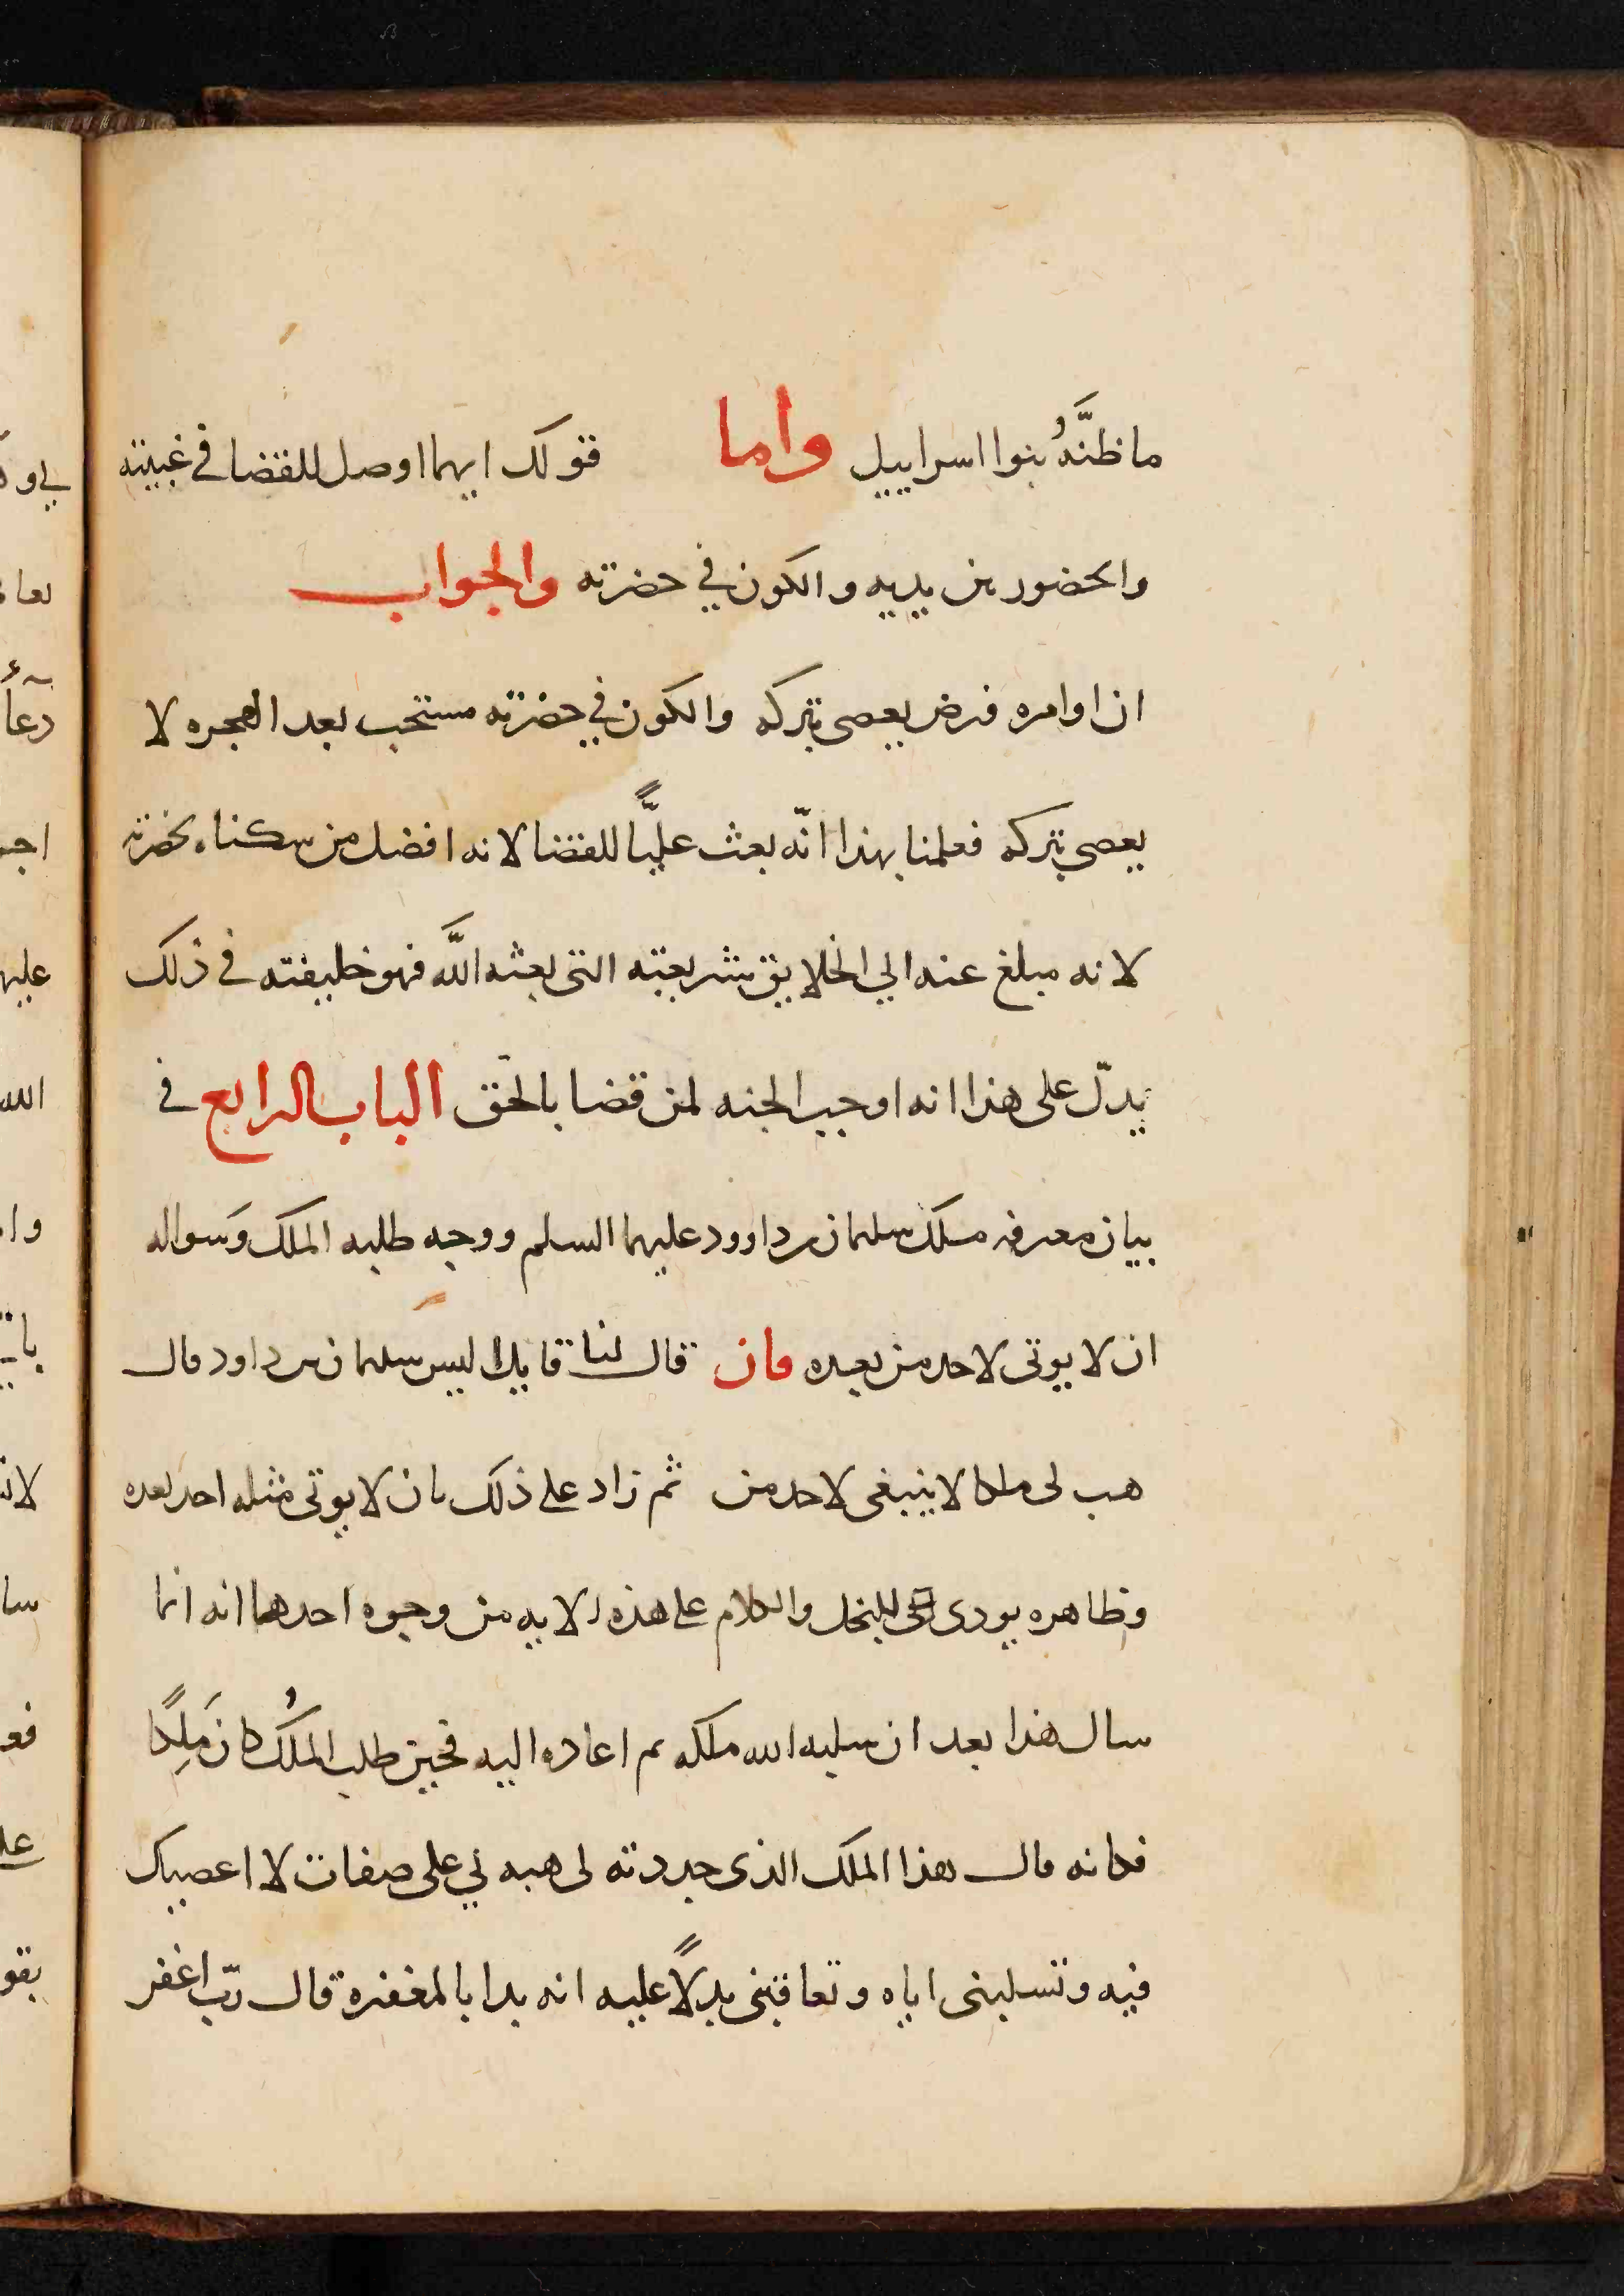 ما ظنَّهُ بنوا اسراييل واما قولك ايهما اوصل للقضا في غيبته
والحضور بين يديه والكون في حضرته والجواب
ان اوامره فرض يعصى بتركه والكون في حضرته مستحب بعد الهجره لا
يعصي بتركه فعلمنا بهذا انّه بعث عليًّا للقضا لانه افضل من سكناه بحضرته
لانه مبلغ عنه الي الخلايق بشريعته التى بعثه اللَّه فهو خليفته في ذلك
يدلّ على هذا انه اوجب الجنه لمن قضا بالحق الباب الرابع في
بيان معرفه ملك سليمان بن داوود عليهما السلم ووجه طلبه الملك وَسواله
ان لا يوتى لاحد من بعده فان قال لنا قايل اليس سليمان بن داود قال
هب لى ملكا لا ينبغى لاحد من ثم زاد على ذلك بان لا يوتى مثله احد بعده
وظاهره يودى الى البخل والكلام على هذه الايه من وجوه احدهما انه انما
سال هذا بعد ان سلبه الله ملكه ثم اعاده اليه فحين طلب الملُك كان مَلِكًا
فكانه قال هذا الملك الذى جددته لى هبه لي على صفات لا اعصيك
فيه وتسلبنى اياه وتعاقبنى بدلًا عليه انه بدا بالمغفره قال ربّ اغفر